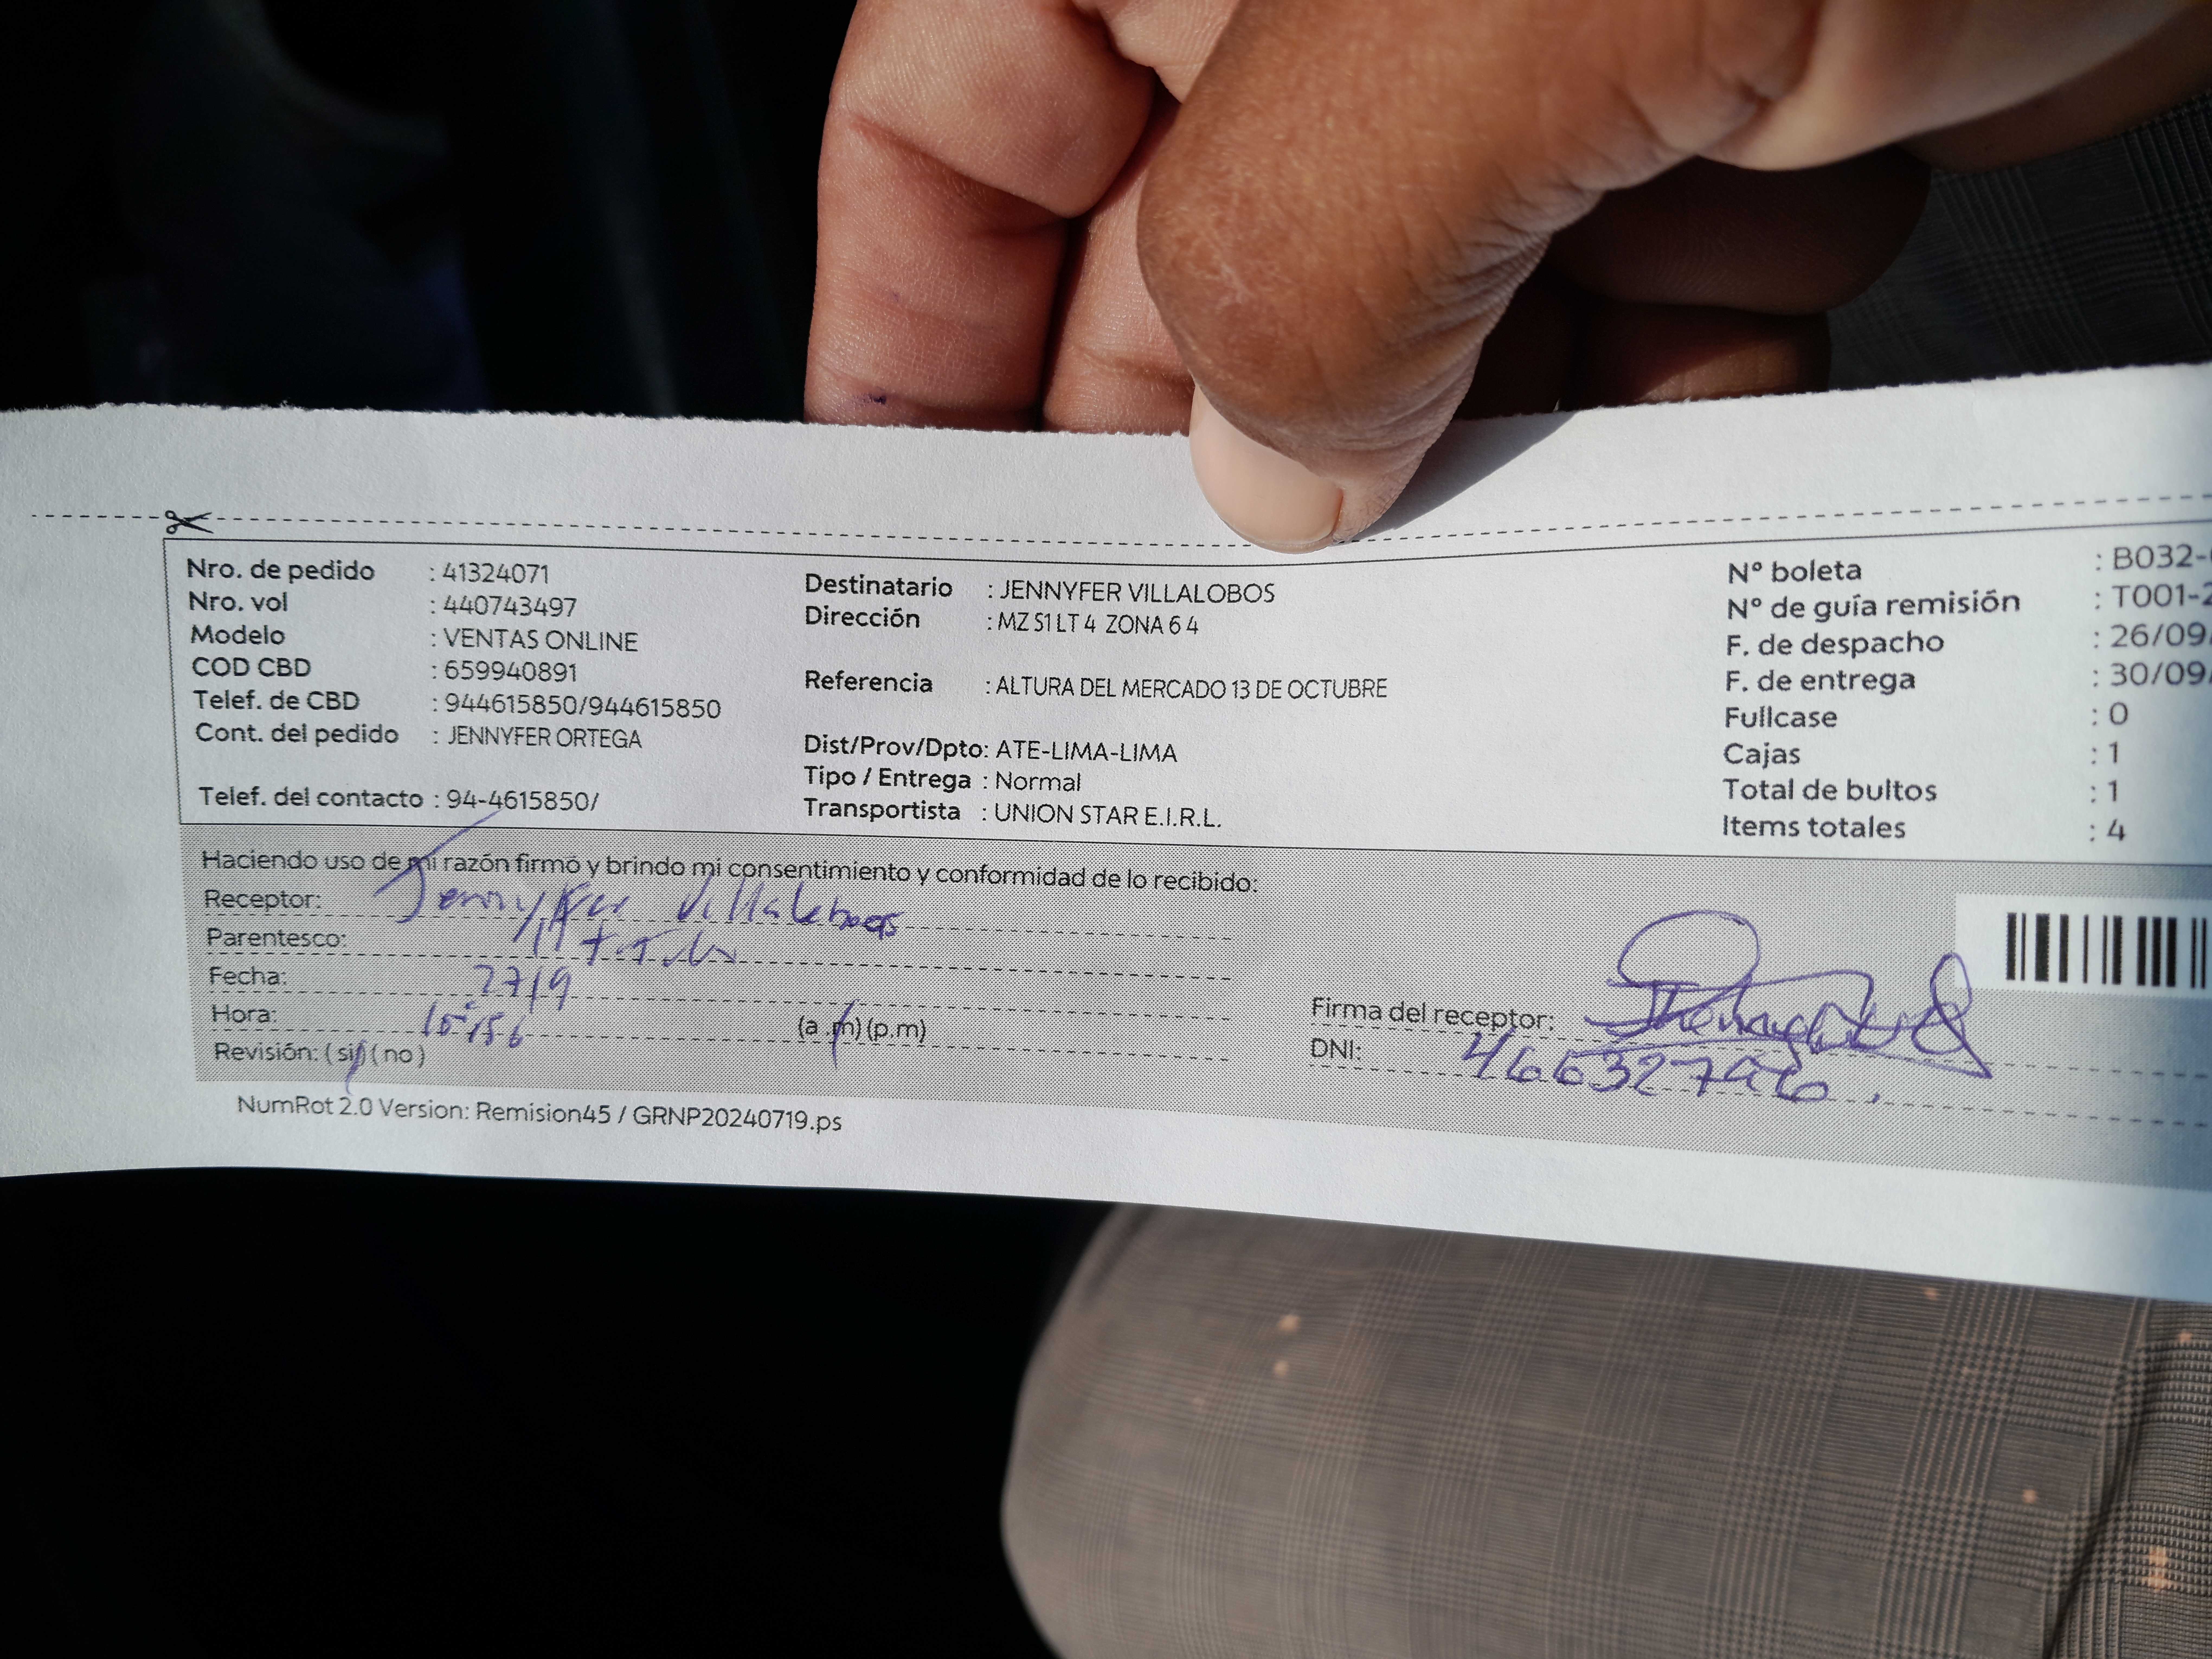 Nro. de pedido : 41324071
Nro. vol : 440743497
Modelo : VENTAS ONLINE
COD CBD : 659940891
Telef. de CBD : 944615850/944615850
Cont. del pedido : JENNYFER ORTEGA
Telef. del contacto : 94-4615850/
Destinatario : JENNYFER VILLALOBOS
Dirección : MZ 51 LT 4 ZONA 6 4
Referencia : ALTURA DEL MERCADO 13 DE OCTUBRE
Dist/Prov/Dpto: ATE-LIMA-LIMA
Tipo / Entrega : Normal
Transportista : UNION STAR E.I.R.L.
Nº boleta : B032-
Nº de guía remisión : T001-2
F. de despacho : 26/09
F. de entrega : 30/09
Fullcase : 0
Cajas : 1
Total de bultos : 1
Items totales : 4
Haciendo uso de mi razón firmo y brindo mi consentimiento y conformidad de lo recibido:
Receptor: Jennyfer Villalobos
Parentesco:
Fecha: 27/9
Hora: (a.m) (p.m)
Revisión: (si) (no)
Firma del receptor:
DNI:
NumRot 2.0 Version: Remision45 / GRNP20240719.ps